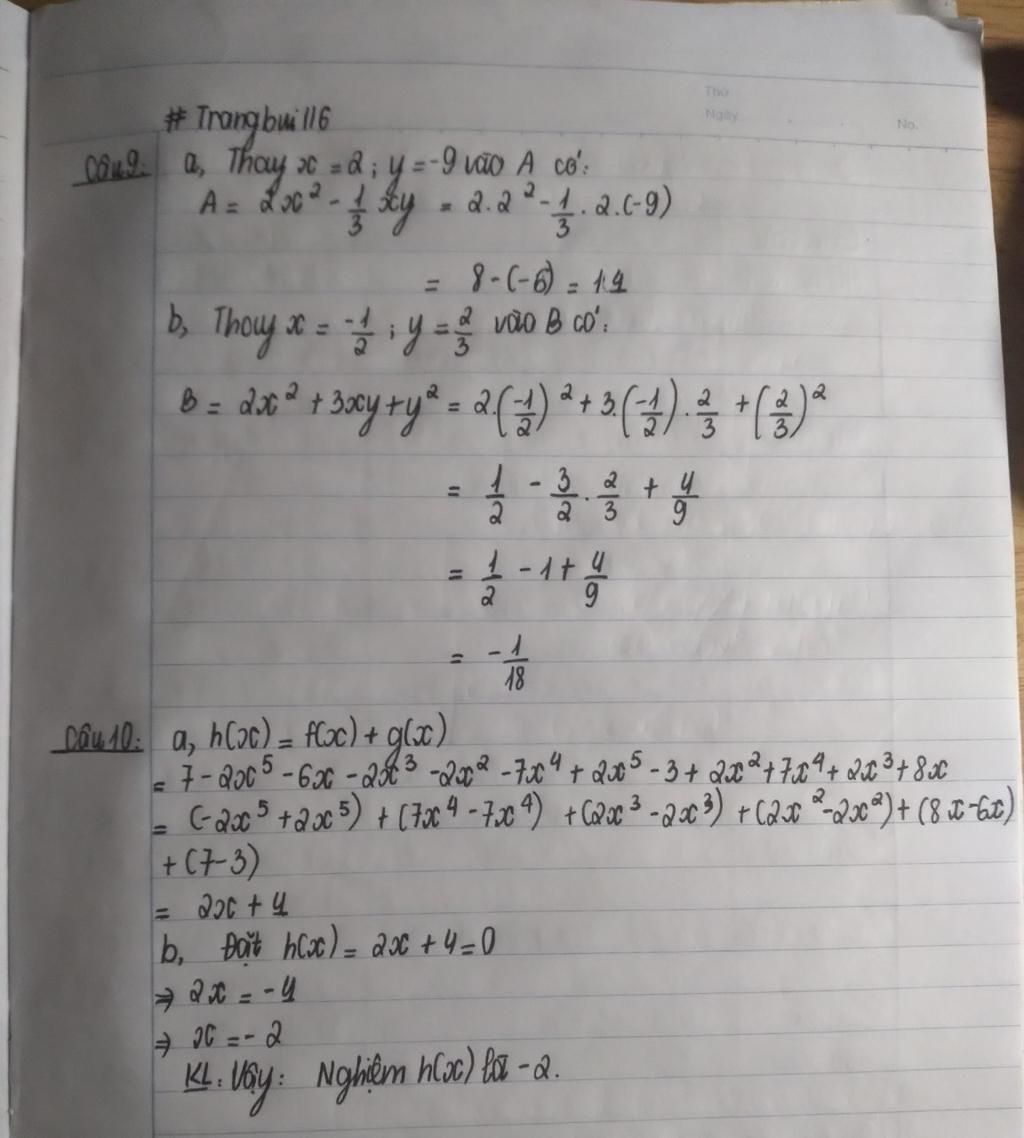 Thứ
Ngày
No.
# Trangbui116
Câu 9: a, Thay x = 2 ; y = -9 vào A có:
A = 2x² - 1/3 xy = 2.2² - 1/3 . 2.(-9)
= 8 - (-6) = 14
b, Thay x = -1/2 ; y = 2/3 vào B có:
B = 2x² + 3xy + y² = 2.(-1/2)² + 3.(-1/2) . 2/3 + (2/3)²
= 1/2 - 3/2 . 2/3 + 4/9
= 1/2 - 1 + 4/9
= -1/18
Câu 10: a, h(x) = f(x) + g(x)
= 7 - 2x⁵ - 6x - 2x³ - 2x² - 7x⁴ + 2x⁵ - 3 + 2x² + 7x⁴ + 2x³ + 8x
= (-2x⁵ + 2x⁵) + (7x⁴ - 7x⁴) + (2x³ - 2x³) + (2x² - 2x²) + (8x - 6x)
+ (7 - 3)
= 2x + 4
b, Đặt h(x) = 2x + 4 = 0
⇒ 2x = -4
⇒ x = -2
KL: Vậy: Nghiệm h(x) là -2.